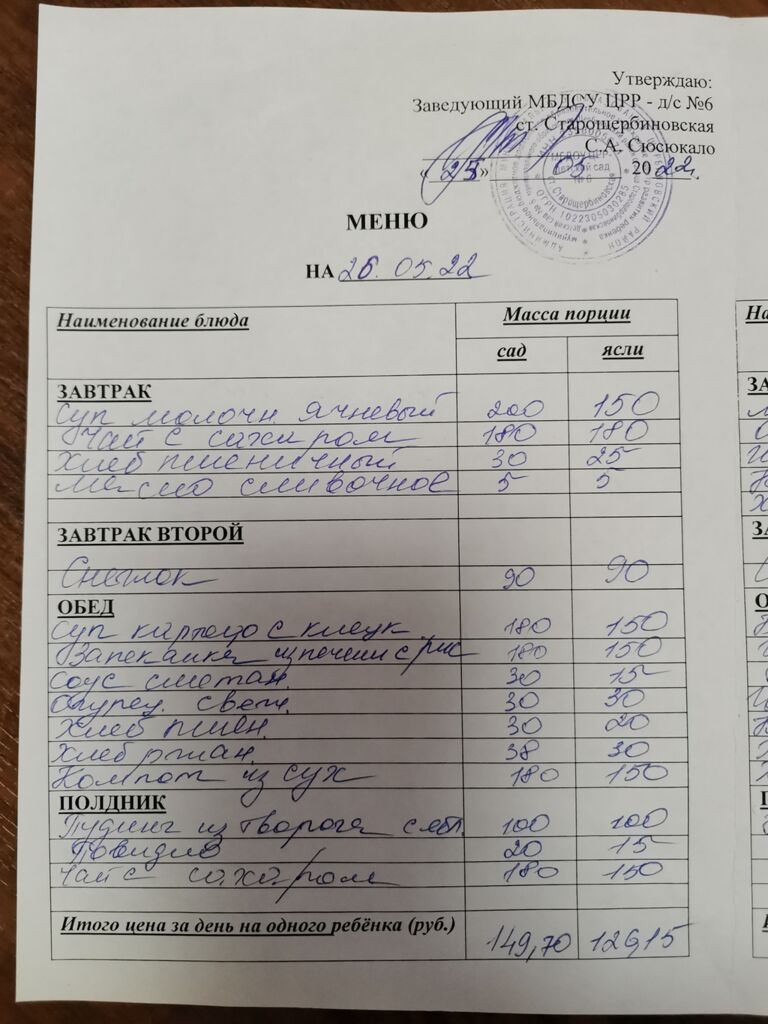 Утверждаю:
Заведующий МБДОУ ЦРР - д/с №6
ст. Старощербиновская
С.А. Сюсюкало
«25» 05 2022г.
МЕНЮ
НА 26.05.22
Наименование блюда Масса порции
сад ясли
ЗАВТРАК
Суп молочн. ячневый 200 150
Чай с сахаром 180 180
Хлеб пшеничный 30 25
Масло сливочное 5 5
ЗАВТРАК ВТОРОЙ
Снежок 90 90
ОБЕД
Суп картофо с клецк. 180 150
Запеканка из печени с рис 180 150
Соус сметан. 30 15
Огурец свеж. 30 30
Хлеб пшен. 30 20
Хлеб ржан. 38 30
Компот из сух 180 150
ПОЛДНИК
Пудинг из творога с ябл. 100 100
Повидло 20 15
Чай с сахаром 180 150
Итого цена за день на одного ребёнка (руб.) 149,70 126,15